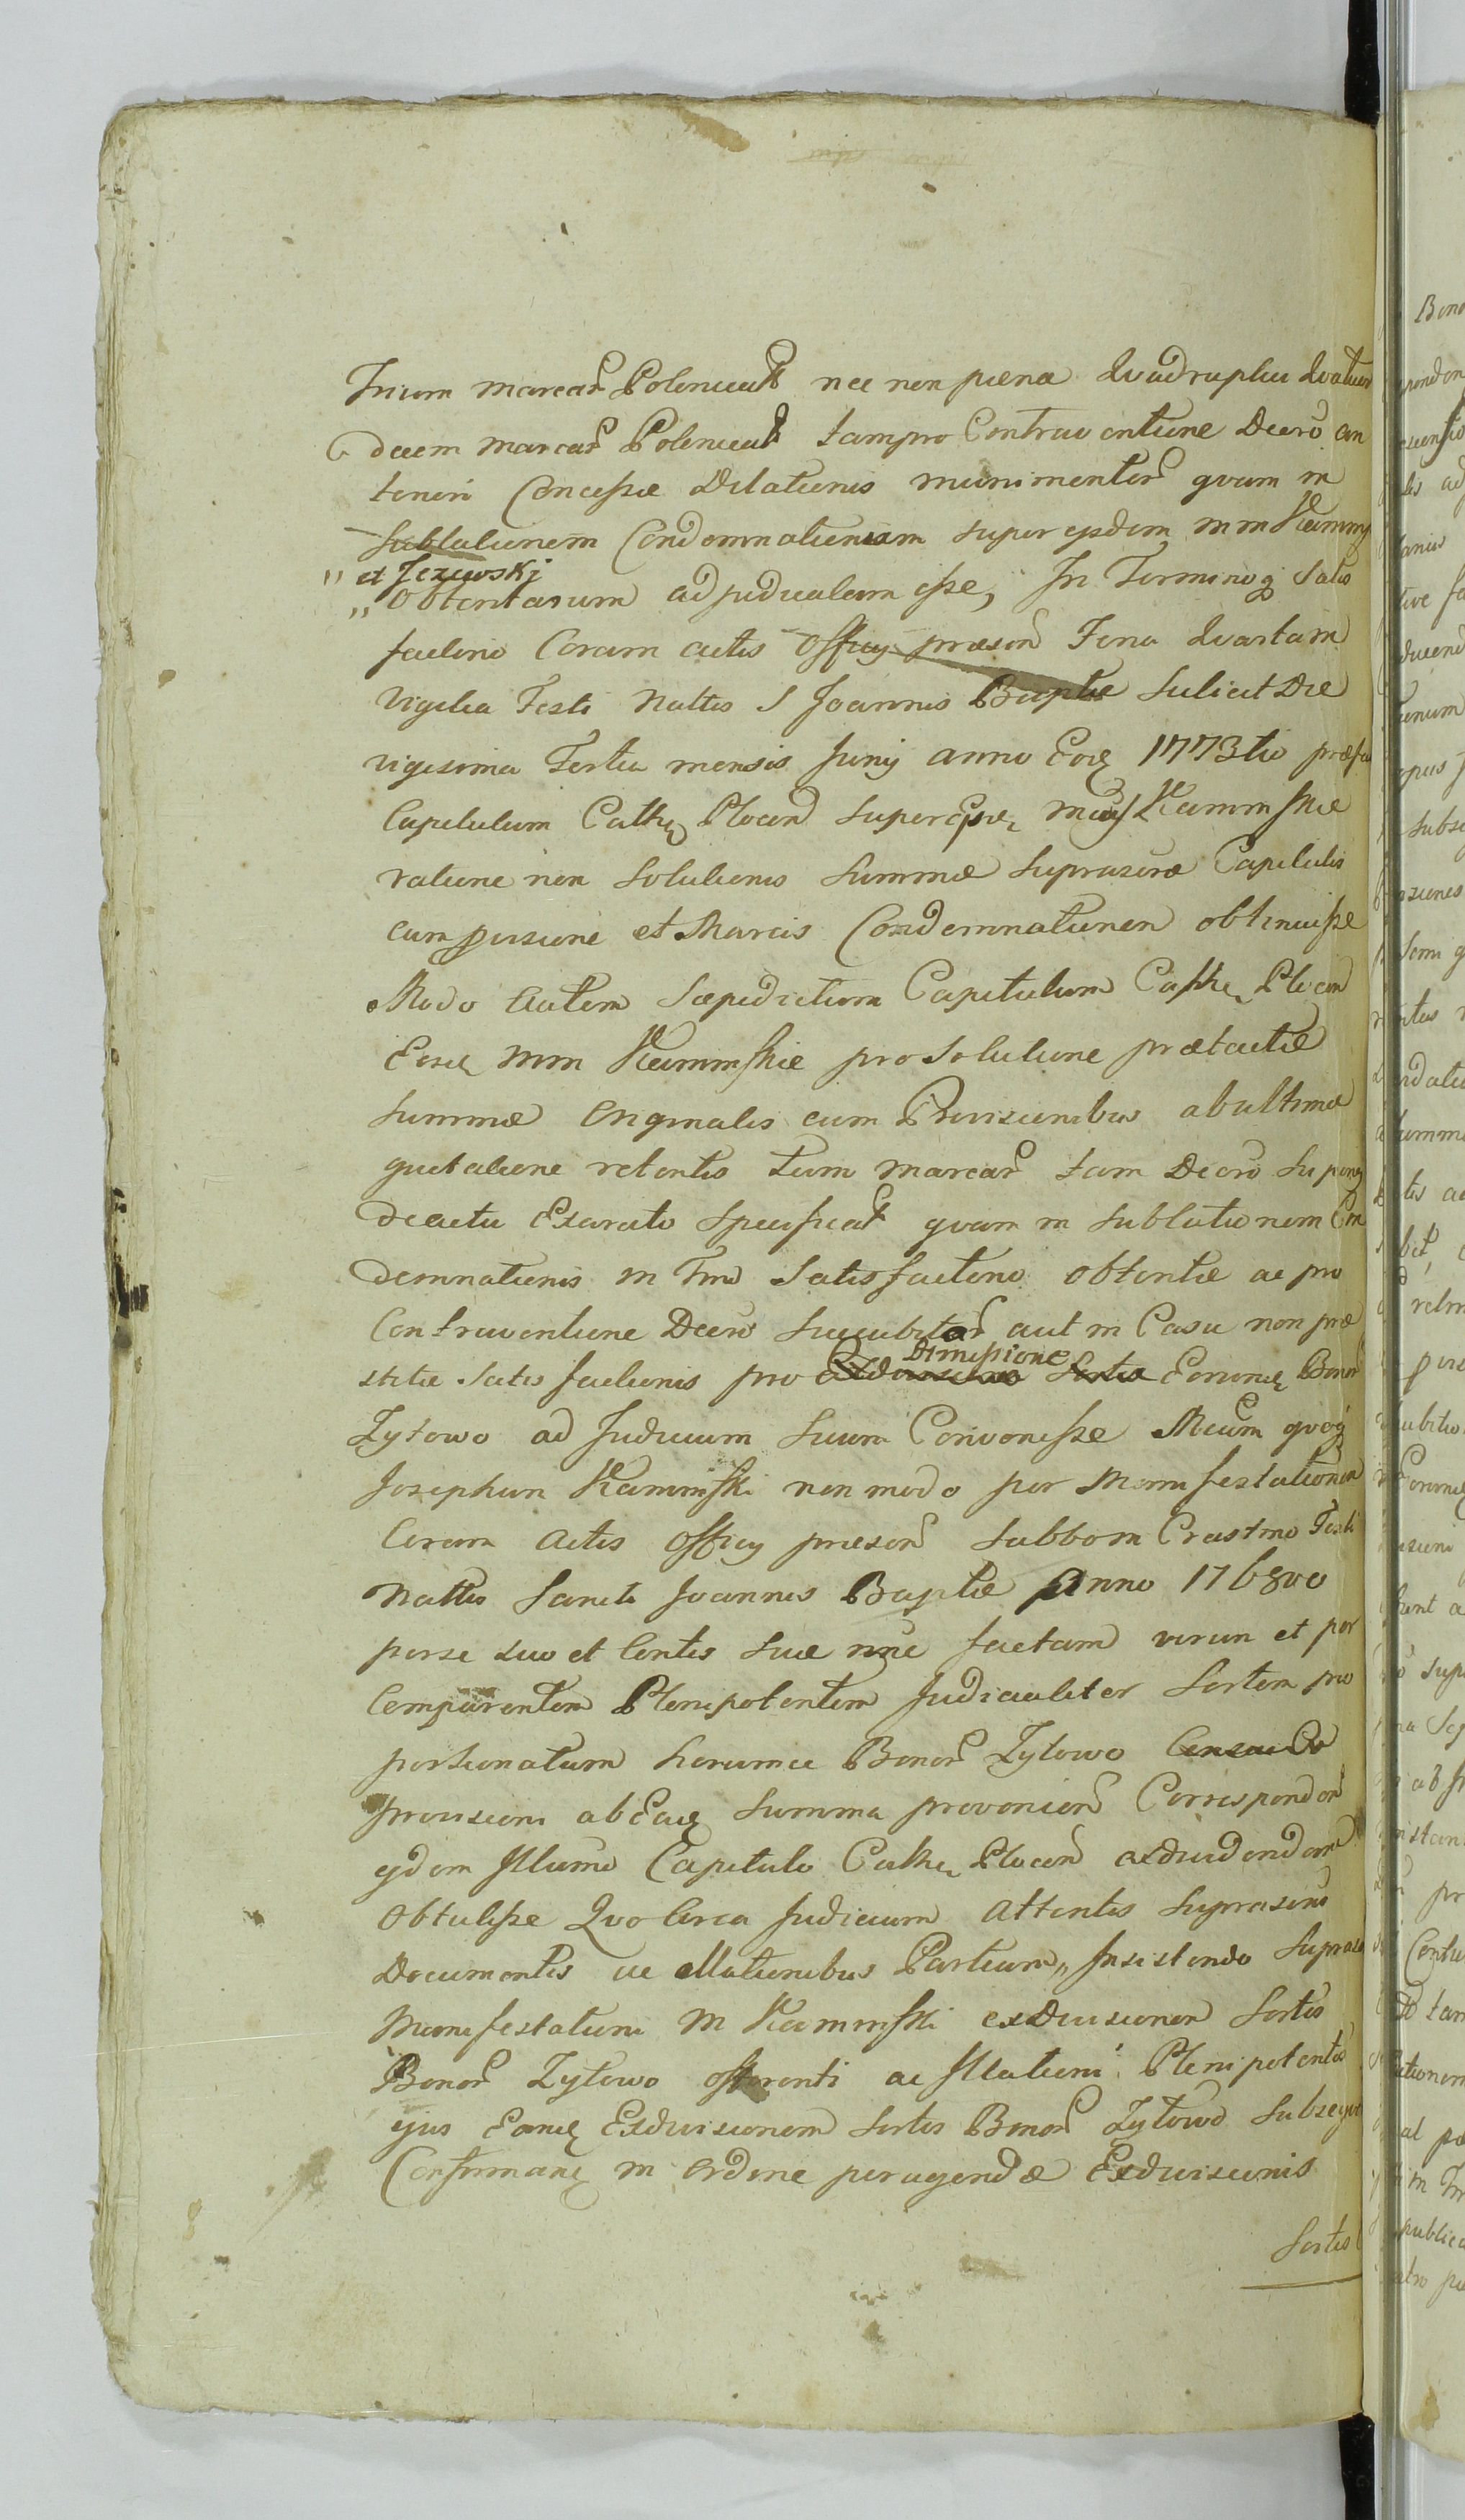 Trium marcar Polonical nec non poena Quadruplici Quatuor
decem marcar Polonical tam pro Contraventione Decro an
teriori Concessae Dilationis munimentor quam in
sublationem Condemnationum super eisdem mm Kammins
" et Jezewski
,, Obtentarum adjudicatam esse, In Terminoq Satis
factorio Coram actis Officij praesen Feria Quarta in
Vigilia Festi Nattis S Joannis Baptae Scilicet Die
vigesima Tertia mensis Junij anno Eoq 1773tio praefa
Capitulum Cathe Plocen super Kaminskie
ratione non Solutionis Summae suprascrae Capitalis
cum provisione et Marcis Condemnationem obtinuisse
Modo autem Saepedictum Capitulum Cathe Plocen
Eosd mm Kaminskie pro Solutione praetactae
Summae Originalis cum Provisionibus ab ultima
quietatione retentis tum marcar tam Decro supe
de actu Exarato specificat quam in sublationem Con
demnationis in Tno Satisfactorio obtentae ac pro
Contraventione Decro succubitar aut in Casu non prae
stitae Satisfactionis pro Exdivisione Dimissione Sortis Eorund Bonor
Zytowo ad Judicium suum Convenisse Mcum quoq
Josephum Kaminski non modo per Manifestationem
Coram Actis Officij praesen Sabbo in Crastino Festi
Nattis Sancti Joannis Baptae Anno 1768vo
per se suo et Contis suae nne factam verum et per
Comparentem Plenipotentem Judicialiter Sortem pro
portionatam horumce Bonor Zytowo
Provisioni ab Ead Summa provenien Corresponden
eidem Illumo Capitulo Cathe Plocen exdividendam
Obtulisse Quo Circa Judicium Attentis suprascris
Documentis ac Illationibus Partium,, Insistendo suprasc
Manifestationi M Kaminski exdivisionem Sortis
Bonor Zytowo offerenti ac Illationi Plenipotentis
ejus Eand Exdivisionem Sortis Bonor Zytowo subseque
Confirman in Ordine peragendae Exdivisionis
Sortis